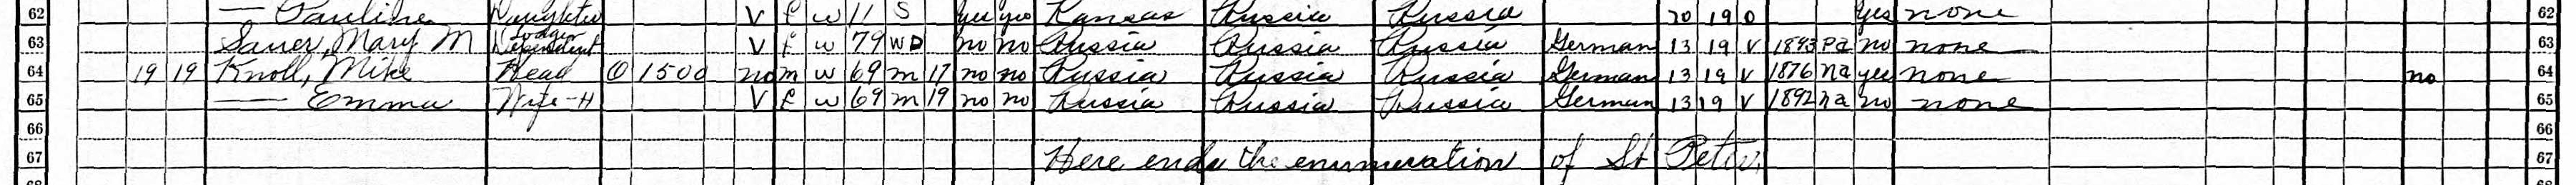 62 — Pauline Daughter V f w 11 S yes yes Kansas Russia Russia 70 19 0 yes none 62
63 Sauer, Mary M Lodger Dependent V f w 79 WD no no Russia Russia Russia German 13 19 V 1893 Pa no none 63
64 19 19 Knoll, Mike Head O 1500 no m w 69 m 17 no no Russia Russia Russia German 13 19 V 1876 na yes none no 64
65 — Emma Wife-H V f w 69 m 19 no no Russia Russia Russia German 13 19 V 1892 na no none 65
66 66
67 Here ends the enumeration of St Peter. 67
68 68